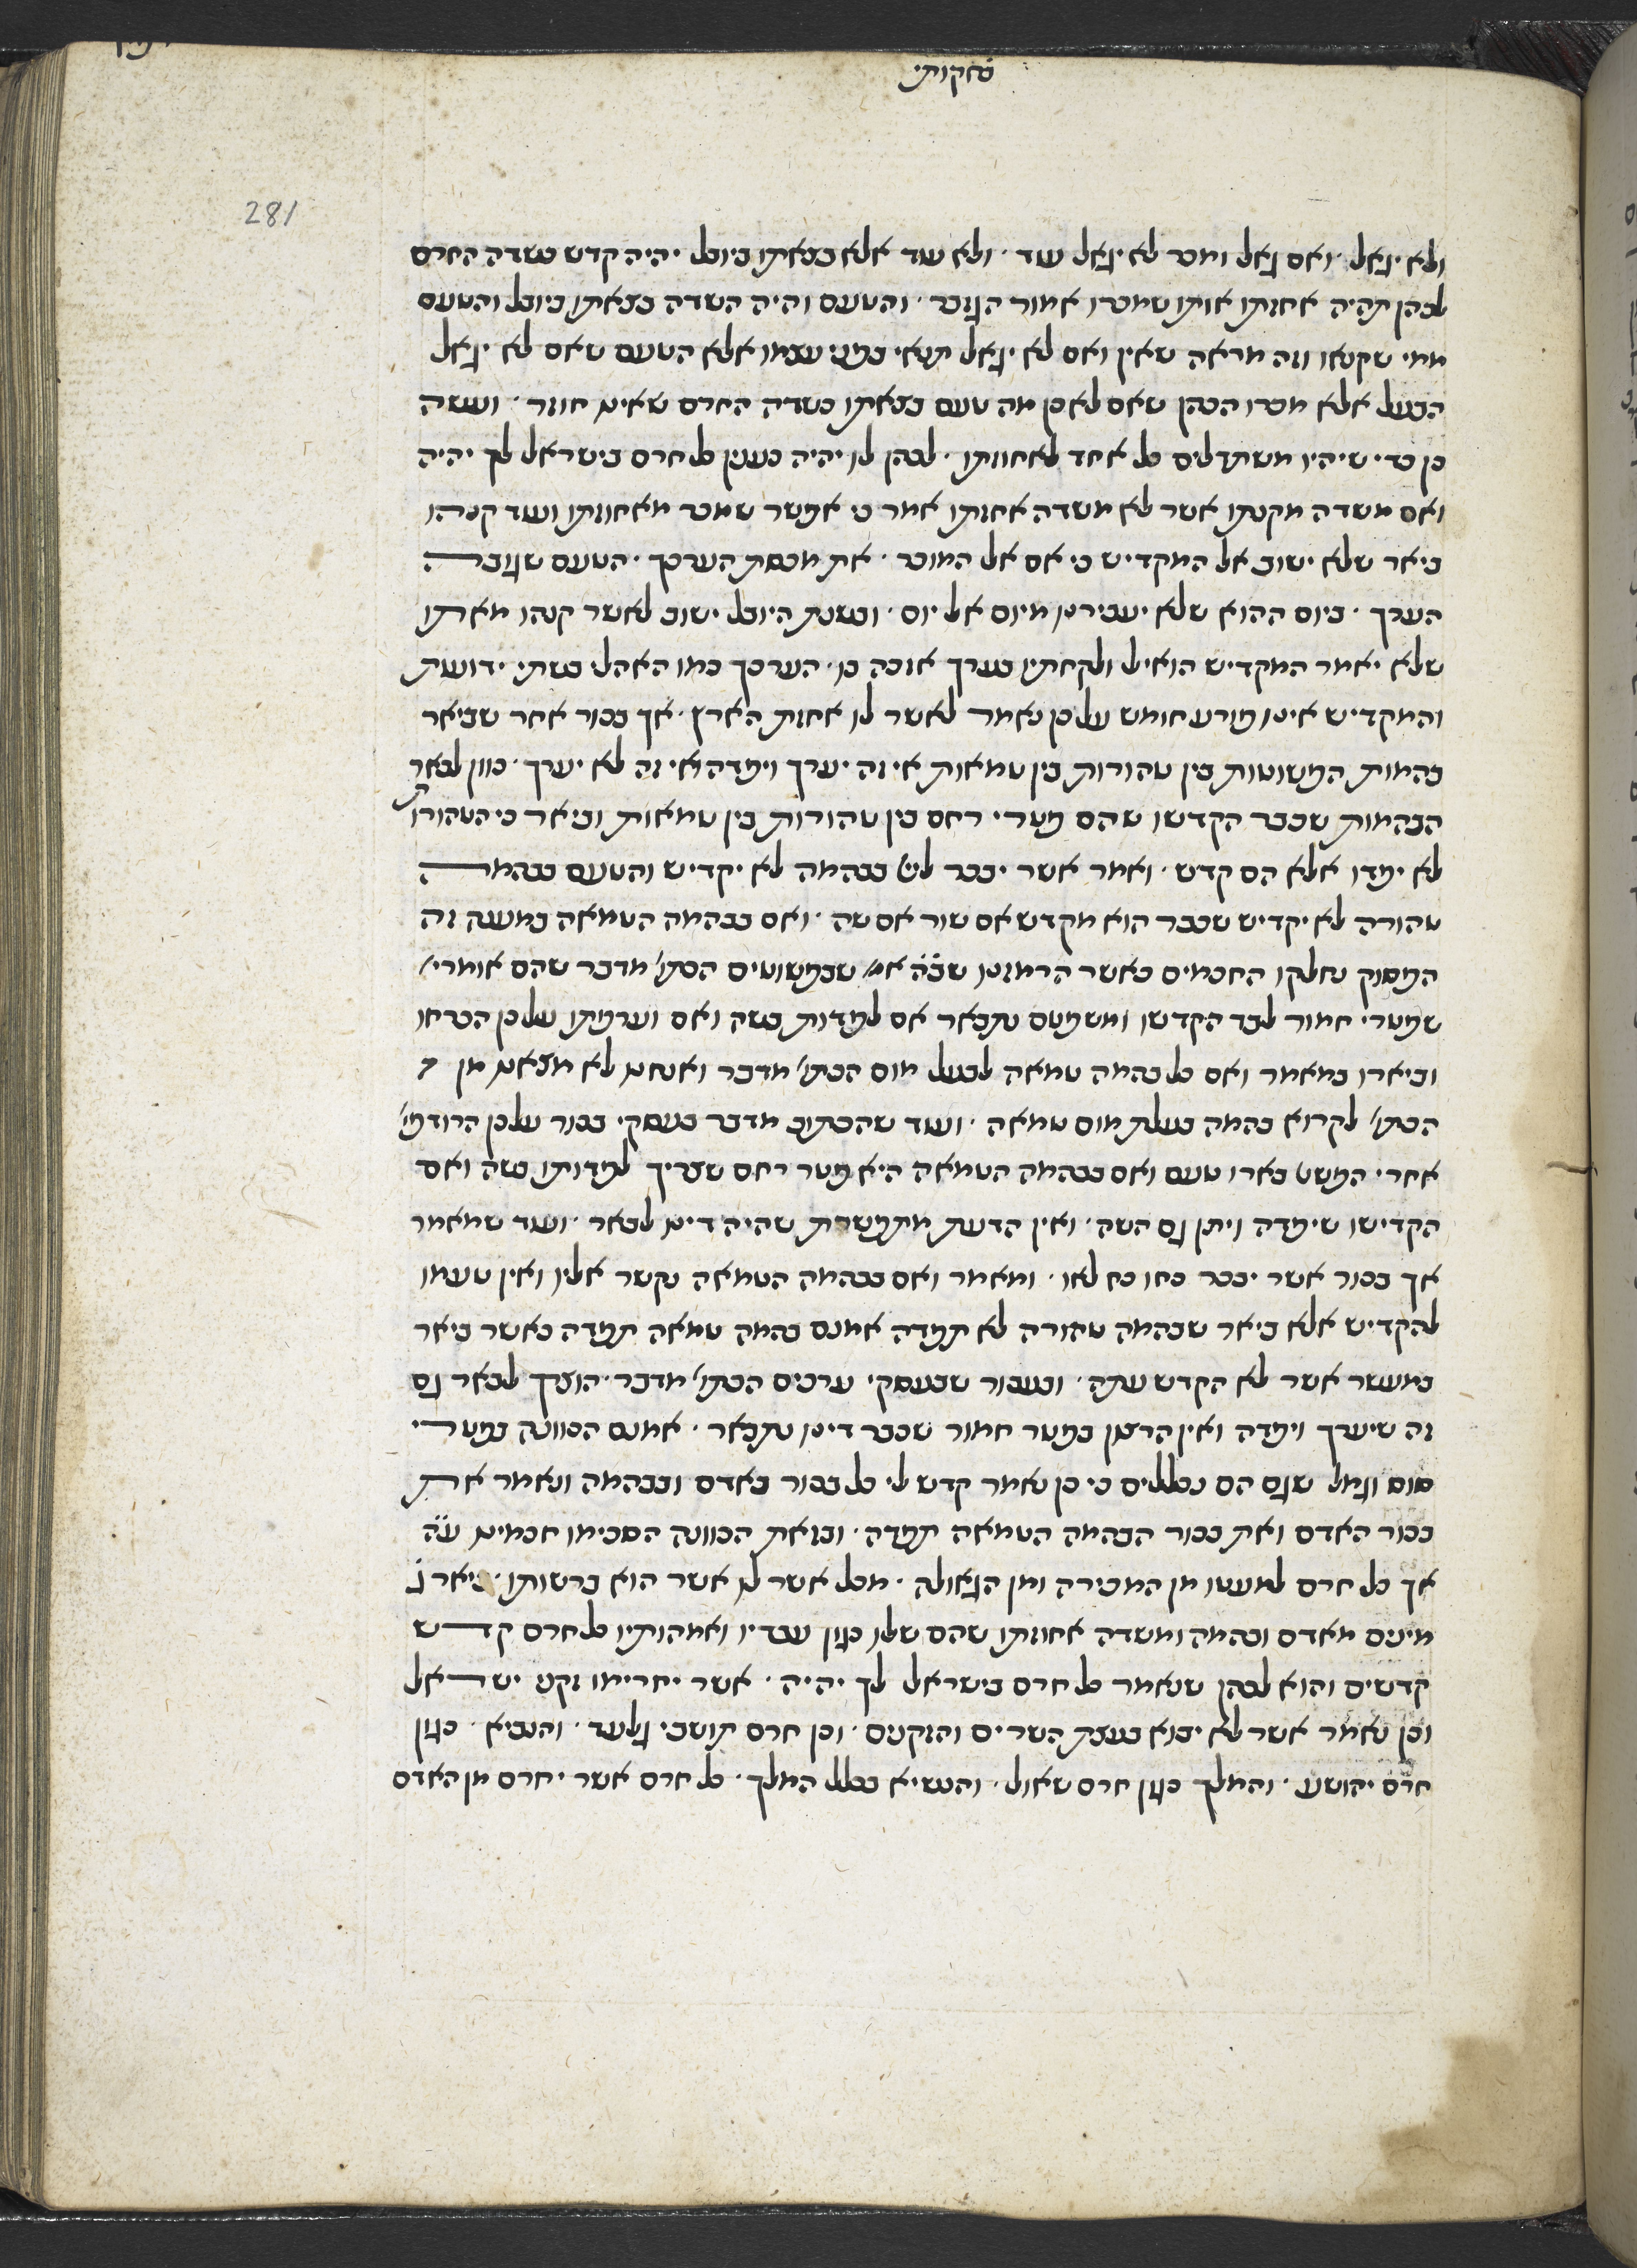 בחקותי
281
ולא יגאל · ואם גאל ומכר לא יגאל עוד · ולא עוד אלא בצאתו ביובל יהיה קדש כשדה החרם
לכהן תהיה אחזתו אותו שמכרו אמור הגזבר · והטעם והיה השדה בצאתו ביובל והטעם
ממי שקנאו וזה מראה שאין ואם לא יגאל תנאי בפני עצמו אלא הטעם שאם לא יגאל
הבעל אלא מכרו הכהן שאם לא כן מה טעם בצאתו כשדה החרם שאינו חוזר · ועשה
כן כדי שיהיו משתדלים כל אחד לאחוזתו · לכהן לו יהיה כענין כל חרם בישראל לך יהיה
ואם משדה מקנתו אשר לא משדה אחזתו אמר כי אפשר שמכר מאחוזתו ועוד קנהו
ביאר שלא ישוב אל המקדיש כי אם אל המוכר · את מכסת הערכך · הטעם שגובה
הערך · ביום ההוא שלא יעבירנו מיום אל יום · ובשנת היובל ישוב לאשר קנהו מאתו
שלא יאמר המקדיש הואיל ולקחתיו בערך אזכה בו · הערכך כמו האהלי בשתי ידועות
והמקדיש אינו פורע חומש על כן נאמר לאשר לו אחזת הארץ · אך בכור אחר שביאר
בהמות הפשוטות בין טהורות בין טמאות אי זה יערך ויפדה ואי זה לא יערך · כוון לבאר
הבהמות שכבר הקדשו שהם פטרי רחם בין טהורות בין טמאות וביאר כי הטהורות
לא יפדו אלא הם קדש · ואמר אשר יבכר ליי׳ בבהמה לא יקדיש והטעם בבהמה
טהורה לא יקדיש שכבר הוא מקדש אם שור אם שה · ואם בבהמה הטמאה במענה זה
הפסוק נחלקו החכמים כאשר הרמזנו שבה אמ׳ שבפשוטים הכתו׳ מדבר שהם אומרי׳
שפטרי חמור לבד הקדשו ומשפטם נתבאר אם לפדות בשה ואם וערפתו על כן הכריחו
וביארו במאמר ואם כל בהמה טמאה לבעל מום הכתו׳ מדבר ואנחנו לא מצאנו מן
הכתו׳ לקרוא בהמה בעלת מום טמאה · ועוד שהכתוב מדבר בעסקי בכור על כן הרודפי׳
אחרי הפשט בארו טעם ואם בבהמה הטמאה היא פטר רחם שצריך לפדותו בשה ואם
הקדישו שיפדה ויתן גם השה · ואין הדעת מתפשרת שהיה דינו לבאר · ועוד שמאמר
אך בכור אשר יבכר כחו כח לאו · ומאמר ואם בבהמה הטמאה נקשר אליו ואין טעמו
להקדיש אלא ביאר שבהמה טהורה לא תפדה אמנם בהמה טמאה תפדה כאשר ביאר
במעשר אשר לא הקדש עתה · ובעבור שבעסקי ערכים הכתו׳ מדבר · הוצרך לבאר גם
זה שיערך ויפדה ואין הרצון בפטר חמור שכבר דינו נתבאר · אמנם הכוונה בפטרי
סוס וגמל שגם הם נכללים כי כן נאמר קדש לי כל בכור באדם ובבהמה ונאמר את
בכור האדם ואת בכור הבהמה הטמאה תפדה · ובזאת הכוונה הסכימו חכמינו ע״ה
אך כל חרם למעטו מן המכירה ומן הגאולה · מכל אשר לו אשר הוא ברשותו · ביאר ג׳
מינים מאדם ובהמה ומשדה אחוזתו שהם שלו כגון עבדיו ואמהותיו כל חרם קדש
קדשים והוא לכהן שנאמר כל חרם בישראל לך יהיה · אשר יחרימו זקני ישראל
וכן נאמר אשר לא יבוא בעצת השרים והזקנים · וכן חרם תושבי גלעד · והנביא · כגון
חרם יהושע · והמלך כגון חרם שאול · והנשיא בכלל המלך · כל חרם אשר יחרם מן האדם